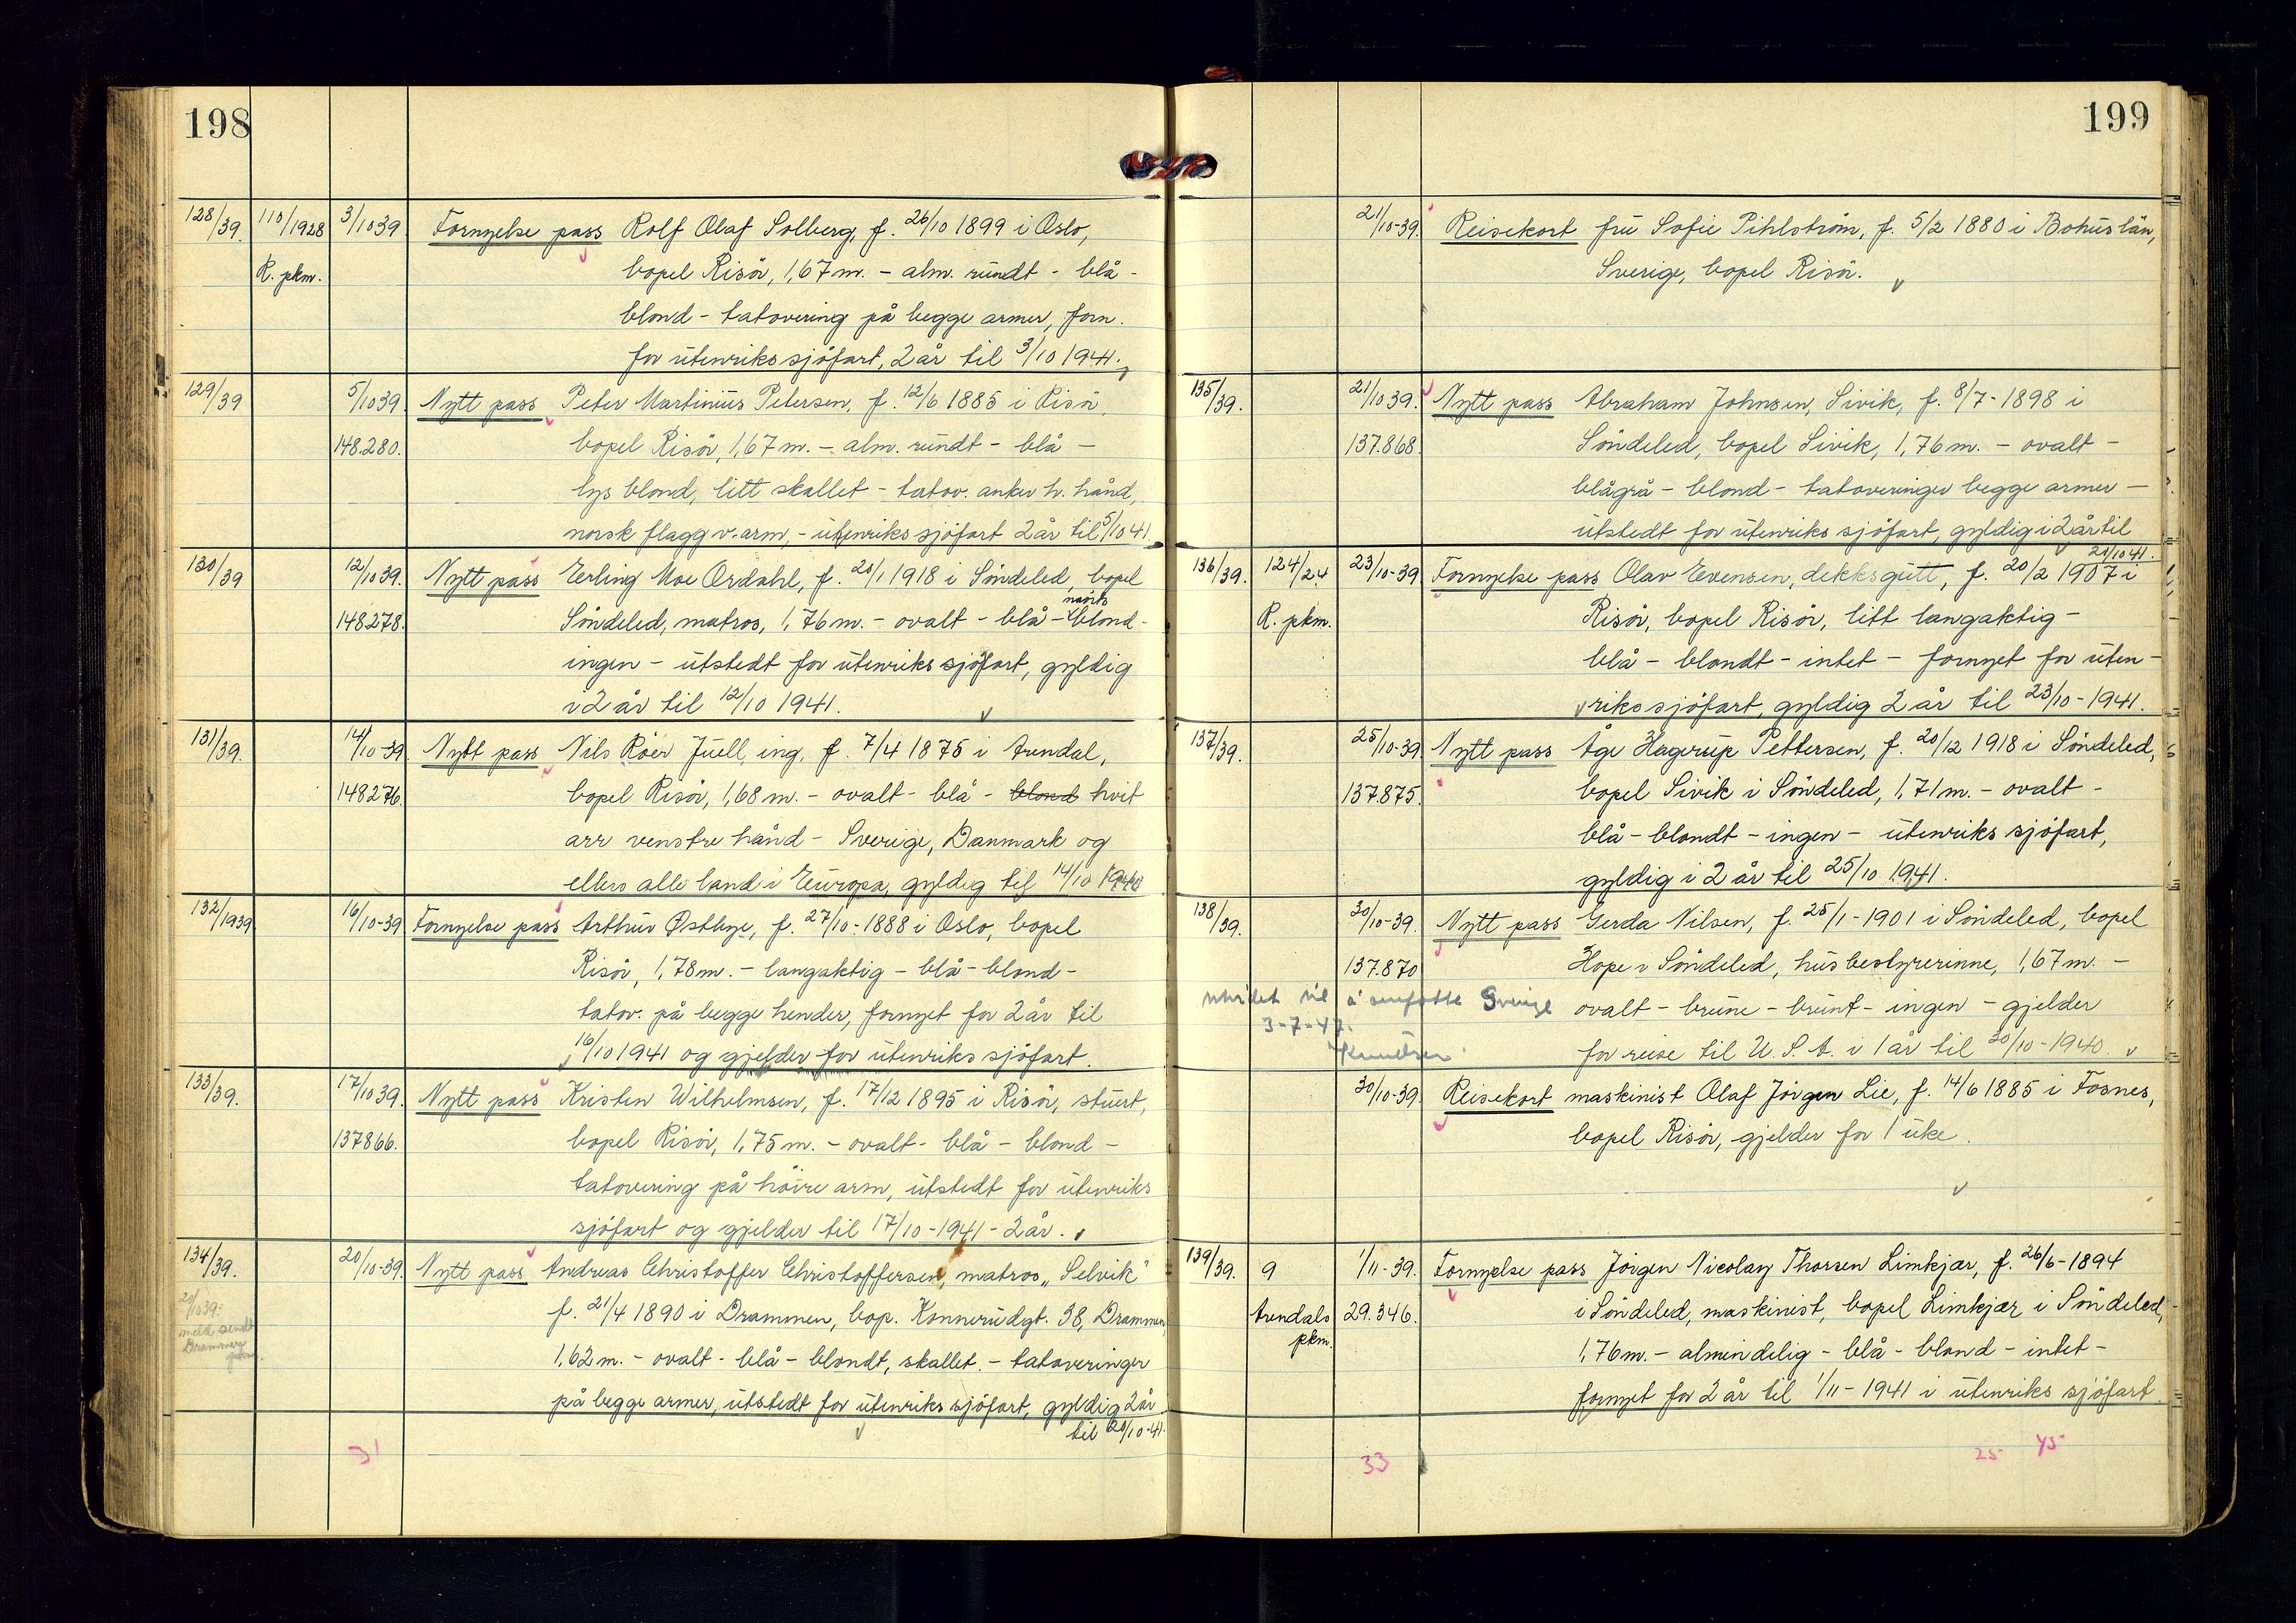 198
128/39. 110/1928 3/10 39. Fornyelse pass Rolf Olaf Solberg, f. 26/10 1899 i Oslo,
R. pkm. bopel Risör, 1,67 m. - alm. rundt - blå -
blond - tatovering på begge armer, forn.
for utenriks sjöfart, 2 år til 3/10 1941.
129/39 5/10 39. Nytt pass Peter Martinius Petersen, f. 12/6 1885 i Risör,
148.280. bopel Risör, 1,67 m. - alm. rundt - blå -
lys blond, litt skallet - tatov. anker h. hånd,
norsk flagg v. arm, - utenriks sjöfart 2 år til 5/10 41.
130/39 12/10 39. Nytt pass Erling Moe Ordahl, f. 20/1 1918 i Söndeled, bopel
148278. Söndeled, matros, 1,76 m. - ovalt - blå - mörk blond -
ingen - utstedt for utenriks sjöfart, gyldig
i 2 år til 12/10 1941.
131/39. 14/10-39 Nytt pass Nils Röer Juell, ing, f. 7/4 1875 i Arendal,
148276. bopel Risör, 1,68 m. - ovalt - blå - blond hvit
arr venstre hånd - Sverige, Danmark og
ellers alle land i Europa, gyldig til 14/10 1940
132/1939 16/10-39 Fornyelse pass Arthur Østbye, f. 27/10-1888 i Oslo, bopel
Risör, 1,78 m. - langaktig - blå - blond -
tatov. på begge hender, fornyet for 2 år til
16/10 1941 og gjelder for utenriks sjöfart.
133/39. 17/10 39. Nytt pass Kristen Wilhelmsen, f. 17/12 1895 i Risör, stuert,
137866. bopel Risör, 1,75 m. - ovalt - blå - blond -
tatovering på höire arm, utstedt for utenriks
sjöfart og gjelder til 17/10-1941 - 2 år.
134/39. 20/10-39. Nytt pass Andreas Christoffer Christoffersen, matros „Selvik"
20/10 39: f. 21/4 1890 i Drammen, bop. Konnerudgt. 38, Drammen,
meld. sendt
Drammen
1,62 m. - ovalt - blå - blondt, skallet. - tatoveringer
på begge armer, utstedt for utenriks sjöfart, gyldig 2 år
til 20/10-41.
31
199
21/10-39. Reisekort fru Sofie Pihlström, f. 5/2 1880 i Bohuslän,
Sverige, bopel Risör.
135/39. 21/10 39. Nytt pass Abraham Johnsen, Sivik, f. 8/7-1898 i
137.868. Söndeled, bopel Sivik, 1,76 m. - ovalt -
blågrå - blond - tatoveringer begge armer -
utstedt for utenriks sjöfart, gyldig i 2 år til
21/10 41.
136/39. 124/24 23/10-39 Fornyelse pass Olav Evensen, dekksgutt, f. 20/2 1907 i
R. pkm. Risör, bopel Risör, litt langaktig -
blå - blondt - intet - fornyet for uten-
riks sjöfart, gyldig 2 år til 23/10-1941.
137/39. 25/10-39 Nytt pass Åge Hagerup Pettersen, f. 20/12 1918 i Söndeled,
137.875. bopel Sivik i Söndeled, 1,71 m. - ovalt -
blå - blondt - ingen - utenriks sjöfart,
gyldig i 2 år til 25/10 1941.
138/39. 30/10-39. Nytt pass Gerda Nilsen, f. 25/1-1901 i Söndeled, bopel
137.870 Hope i Söndeled, husbestyrerinne, 1,67 m. -
utvidet til å omfatte Sverige ovalt - brune - brunt - ingen - gjelder
3-7-47.
Knudsen for reise til U. S. A. i 1 år til 30/10-1940.
30/10-39. Reisekort maskinist Olaf Jörgen Lie, f. 14/6 1885 i Fosnes,
bopel Risör, gjelder for 1 uke.
139/39. 9 1/11-39. Fornyelse pass Jörgen Nicolay Thorsen Limkjær, f. 26/6-1894
Arendals 29.346. i Söndeled, maskinist, bopel Limkjær i Söndeled,
pkm. 1,76 m. - almindelig - blå - blond - intet -
fornyet for 2 år til 1/11-1941 i utenriks sjöfart.
33 25 45